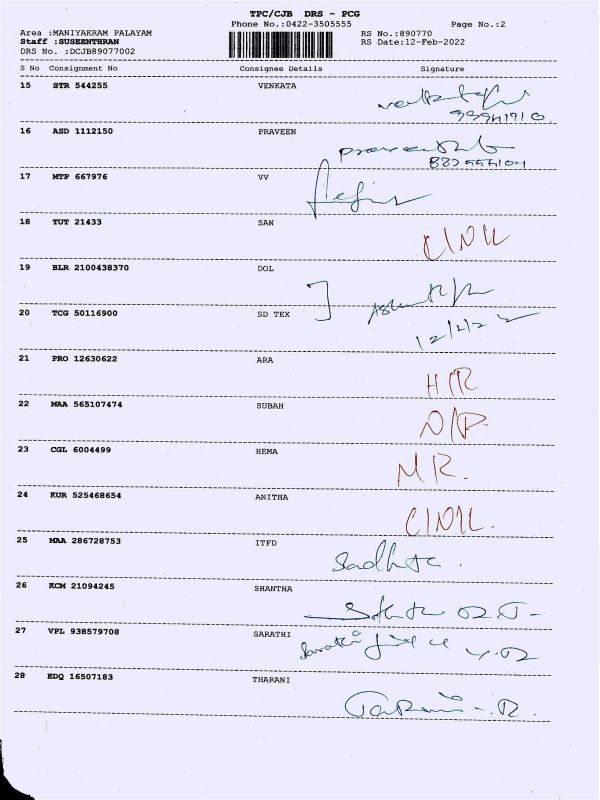 TPC/CJB DRS - PCG
Phone No.:0422-3505555 Page No.:2
Area :MANIYAKRAM PALAYAM RS No.:890770
Staff :SUSEENTHRAN RS Date:12-Feb-2022
DRS No. :DCJB89077002
S No Consignment No Consignee Details Signature
15 STR 544255 VENKATA
16 ASD 1112150 PRAVEEN
17 MTP 667976 VV
18 TUT 21433 SAN
19 BLR 2100438370 DOL
20 TCG 50116900 SD TEX
12/2/22
21 PRO 12630622 ARA
H/R
22 MAA 565107474 SUBAH
N/P
23 CGL 6004499 HEMA
NR.
24 KUR 525468654 ANITHA
25 MAA 286728753 ITFD
26 KCM 21094245 SHANTHA
27 VPL 938579708 SARATHI
Sarathi
28 EDQ 16507183 THARANI